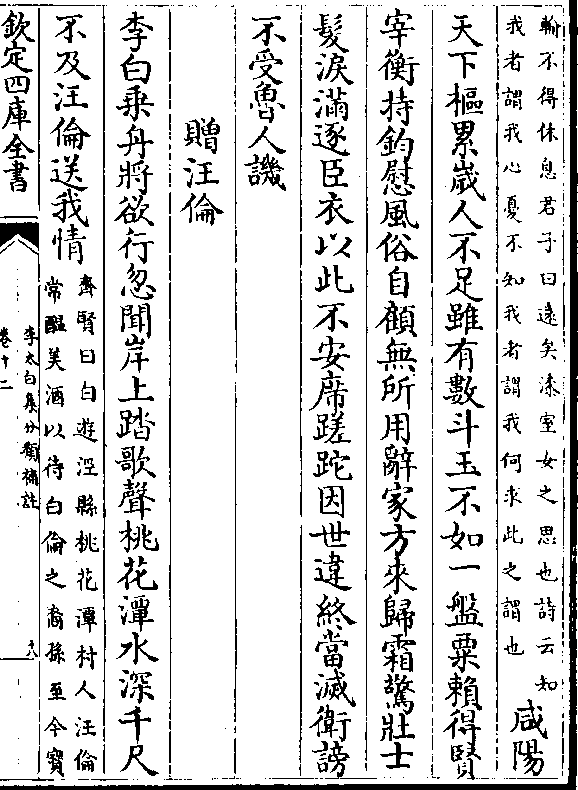 輸不得休息君子曰遠矣漆室女之思也詩云知
我者謂我心憂不知我者謂我何求此之謂也
咸陽
天下樞累嵗人不足雖有數斗玉不如一盤粟賴得賢
宰衡持鈞慰風俗自顧無所用辭家方來歸霜驚壯士
髮淚滿逐臣衣以此不安席蹉跎因世違終當滅衛謗
不受魯人譏
贈汪倫
李白乗舟將欲行忽聞岸上踏歌聲桃花潭水深千尺
不及汪倫送我情
齊賢曰白遊涇縣桃花潭村人汪倫
常醖美酒以待白倫之裔孫至今寳
欽定四庫全書
李太白集分類補註
卷十二
十八